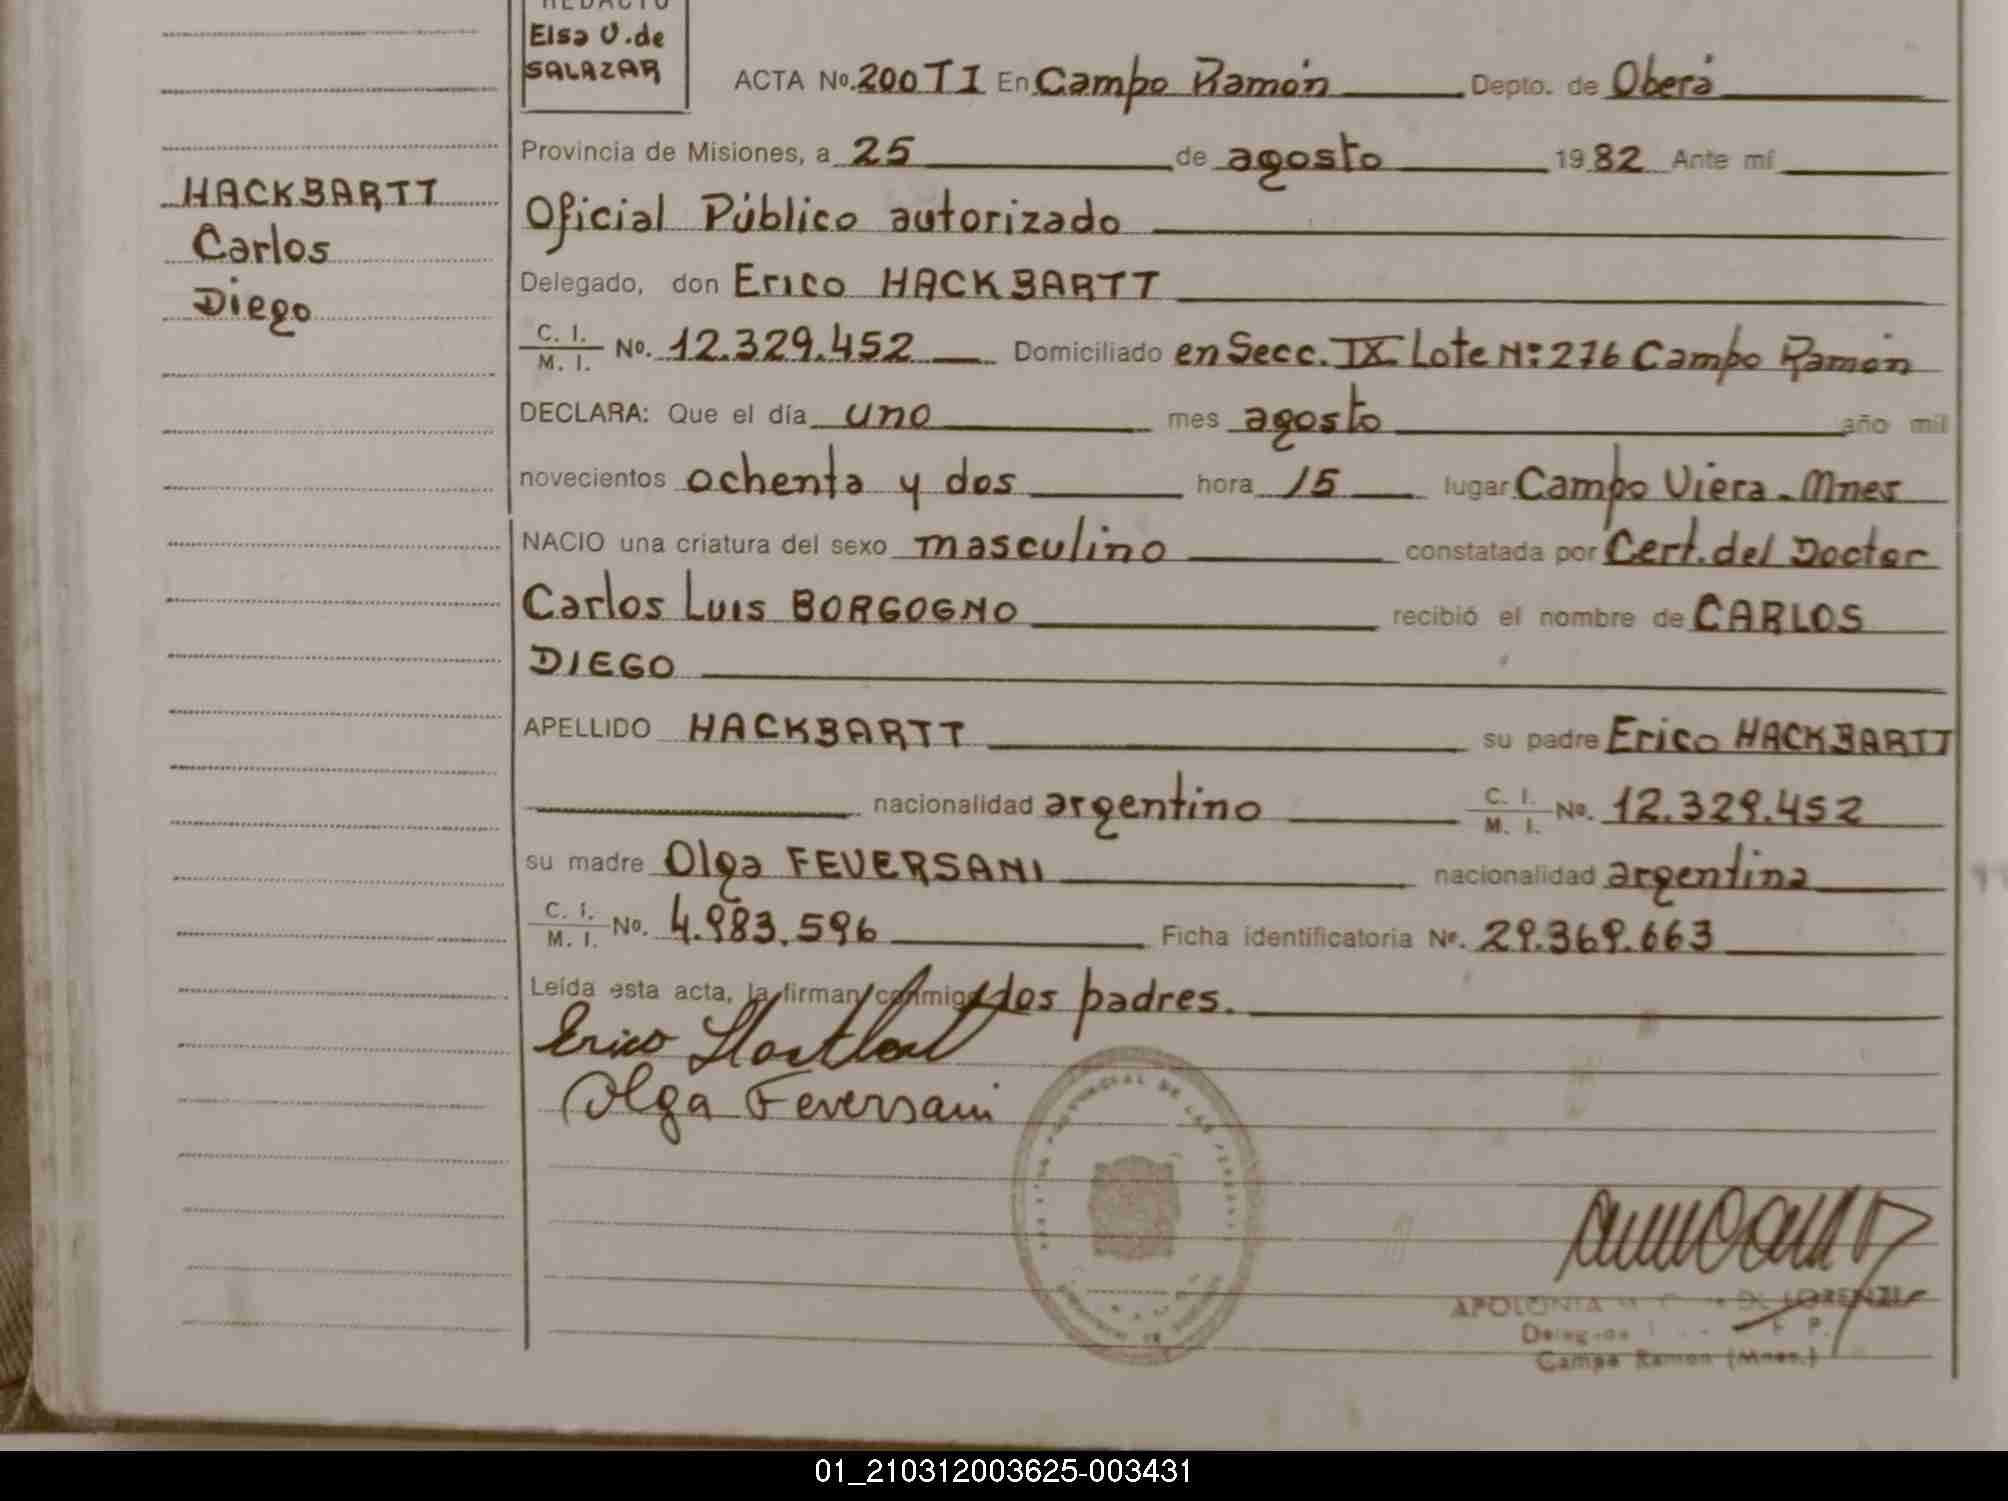 REDACTO
Elsa V. de
SALAZAR
ACTA No. 200 TI En Campo Ramón Depto. de Oberá
Provincia de Misiones, a 25 de agosto 1982 Ante mí
HACKBARTT
Carlos
Diego
Oficial Público autorizado
Delegado, don Erico HACKBARTT
C. I. / M. I. No. 12.329.452 Domiciliado en Secc. IX Lote Nº 276 Campo Ramón
DECLARA: Que el día uno mes agosto año mil
novecientos ochenta y dos hora 15 lugar Campo Viera - Mnes
NACIO una criatura del sexo masculino constatada por Cert. del Doctor
Carlos Luis BORGOGNO recibió el nombre de CARLOS
DIEGO
APELLIDO HACKBARTT su padre Erico HACKBARTT
nacionalidad argentino C. I. / M. I. No. 12.329.452
su madre Olga FEVERSANI nacionalidad argentina
C. I. / M. I. No. 4.983.596 Ficha identificatoria Nº. 29.369.663
Leída esta acta, la firman conmigo los padres.
Erico
Olga Feversani
PROVINCIAL DE LAS PERSONAS
APOLONIA DE LORENZI
Delegada
Campo Ramon (Mnes.)
01_210312003625-003431